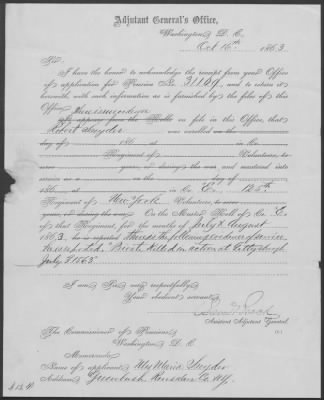 Adjutant General's Office,
Washington D. C.
Oct 16th 1863.
Sir:
I have the honor to acknowledge the receipt from your Office
of application for Pension No. and to return it
herewith with such information as is furnished by the files of this
Office.
it may appear from the Rolls on file in this Office, that
Robert Snyder was enrolled on the
day of 186 in Co.
Regiment of Volunteers, to
serve years, or during the war and mustered into
service as a on the day of
186 in Co. E. 126th
Regiment of New York Volunteers, to serve
years, or during the war. On the Muster Roll of Co. E
of that Regiment for the months of July & August
1863, he is reported
Private Killed in action at Gettysburgh
July 3 1863
I am Sir, very respectfully
Your obedient servant
Assistant Adjutant General.
The Commissioner of Pensions
Washington D. C.
Memoranda
Name of applicant Maria Snyder
Address Greenbush Co. NY.